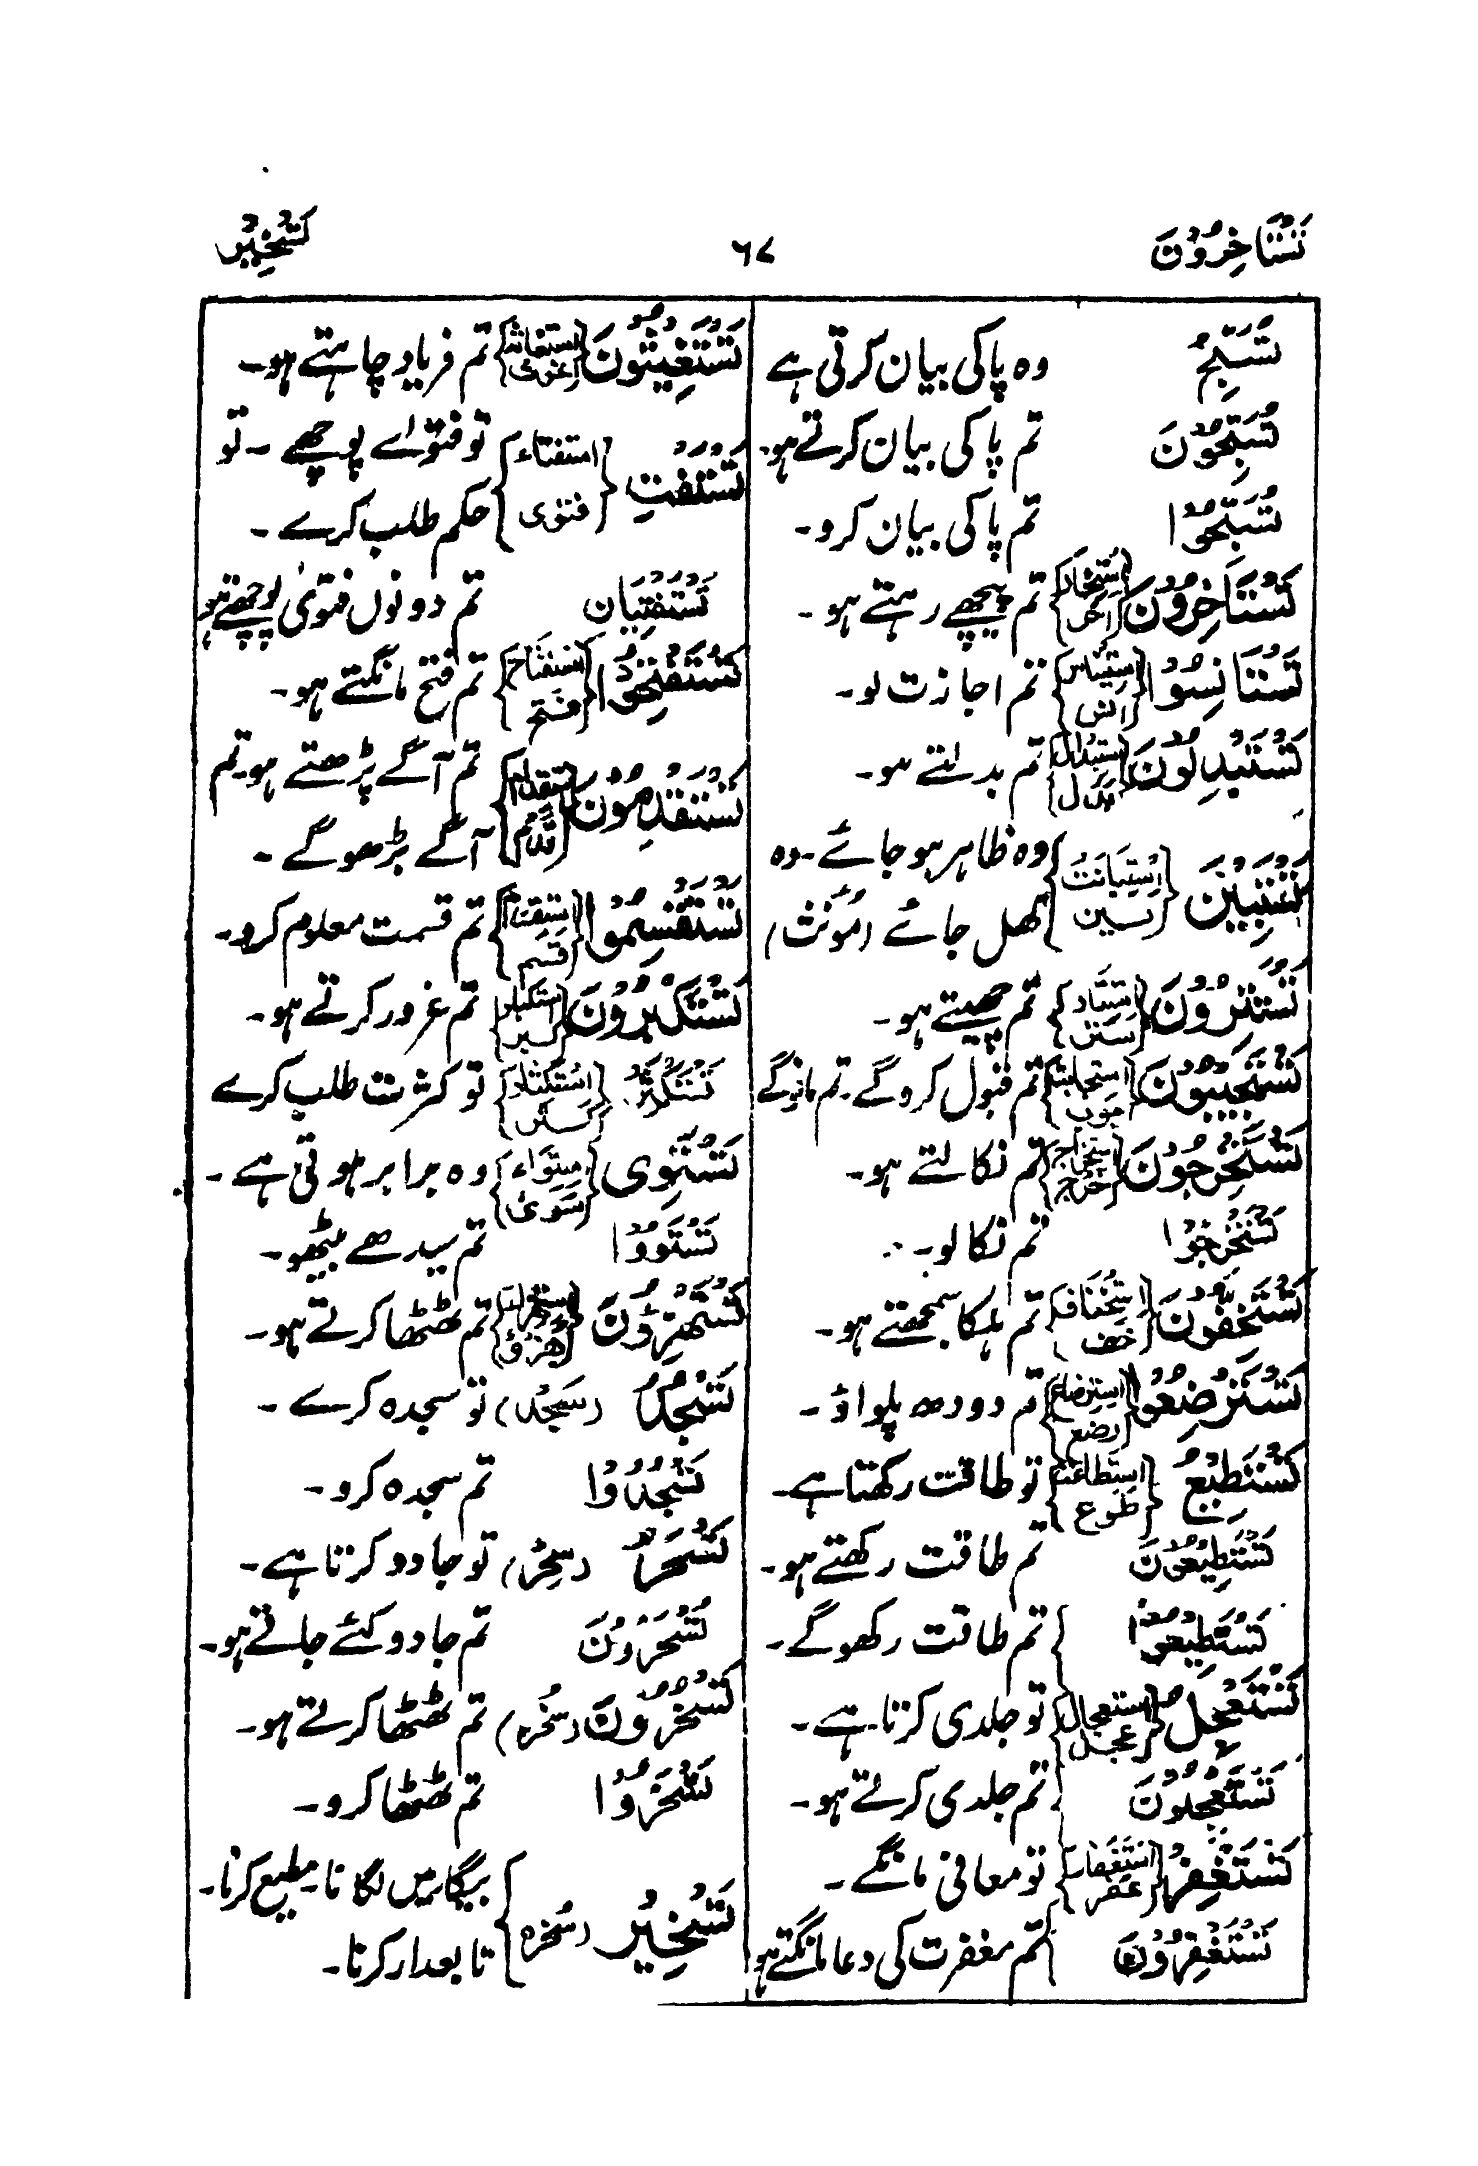 تَسْتَاخِرُوْنَ ۶۷ تَسْخِیْر
تُسَبِّحُ وہ پاکی بیان کرتی ہے
تُسَبِّحُوْنَ تم پاکی بیان کرتے ہو۔
تُسَبِّحُوْا تم پاکی بیان کرو۔
تَسْتَاخِرُوْنَ {اِسْتِیْخَار اخر} تم پیچھے رہتے ہو۔
تَسْتَانِسُوْا {اِسْتِیْنَاس انس} تم اجازت لو۔
تَسْتَبْدِلُوْنَ {اِسْتِبْدَال بدل} تم بدلتے ہو۔
تَسْتَبِیْنَ {اِسْتِبَانَت بین} وہ ظاہر ہو جائے۔ وہ
کھل جائے (مُونث)
تَسْتَتِرُوْنَ {اِسْتِتَار ستر} تم چھپتے ہو۔
تَسْتَجِیْبُوْنَ {استجابۃ جوب} تم قبول کرو گے۔ تم مانو گے
تَسْتَخْرِجُوْنَ {استخراج خرج} تم نکالتے ہو۔
تَسْتَخْرِجُوْا تم نکالو۔
تَسْتَخِفُّوْنَ {اِسْتِخْفَاف خفف} تم ہلکا سمجھتے ہو۔
تَسْتَرْضِعُوْا {استرضاع رضع} تم دودھ پلواؤ۔
تَسْتَطِیْعُ {اِسْتِطَاعَۃ طوع} تو طاقت رکھتا ہے۔
تَسْتَطِیْعُوْنَ تم طاقت رکھتے ہو۔
تَسْتَطِیْعُوْا تم طاقت رکھو گے۔
تَسْتَعْجِلْ {استعجال عجل} تو جلدی کرتا ہے۔
تَسْتَعْجِلُوْنَ تم جلدی کرتے ہو۔
تَسْتَغْفِرْ {استغفار غفر} تو معافی مانگے۔
تَسْتَغْفِرُوْنَ تم مغفرت کی دعا مانگتے ہو
تَسْتَغِیْثُوْنَ {استغاثہ غوث} تم فریاد چاہتے ہو۔
تَسْتَفْتِ {استفتاء فتوی} تو فتوٰے پوچھے۔ تو
حکم طلب کرے۔
تَسْتَفْتِیَان تم دونوں فتویٰ پوچھتے ہو
تَسْتَفْتِحُوْا {استفتاح فتح} تم فتح مانگتے ہو۔
تَسْتَقْدِمُوْنَ {استقدام قدم} تم آگے بڑھتے ہو۔ تم
آگے بڑھو گے۔
تَسْتَقْسِمُوْا {استقسام قسم} تم قسمت معلوم کرو۔
تَسْتَکْبِرُوْنَ {استکبار کبر} تم غرور کرتے ہو۔
تَسْتَکْثِرُ {اِسْتِکْثَار کثر} تو کثرت طلب کرے
تَسْتَوِی {اِسْتِوَاء سوی} وہ برابر ہوتی ہے۔
تَسْتَووْا تم سیدھے بیٹھو۔
تَسْتَهْزِؤُنَ {استہزاء ھزؤ} تم ٹھٹھا کرتے ہو۔
تَسْجُدُ (سَجْدُ) تو سجدہ کرے۔
تَسْجُدُوْا تم سجدہ کرو۔
تَسْحَرَ (سِحْرٌ) تو جادو کرتا ہے۔
تُسْحَرُوْنَ تم جادو کئے جاتے ہو۔
تَسْخَرُوْنَ (سُخْرہ) تم ٹھٹھا کرتے ہو۔
تَسْخَرُوْا تم ٹھٹھا کرو۔
تَسْخِیْر (سُخرہ) بیگار میں لگانا۔ مطیع کرنا۔
تابعدار کرنا۔